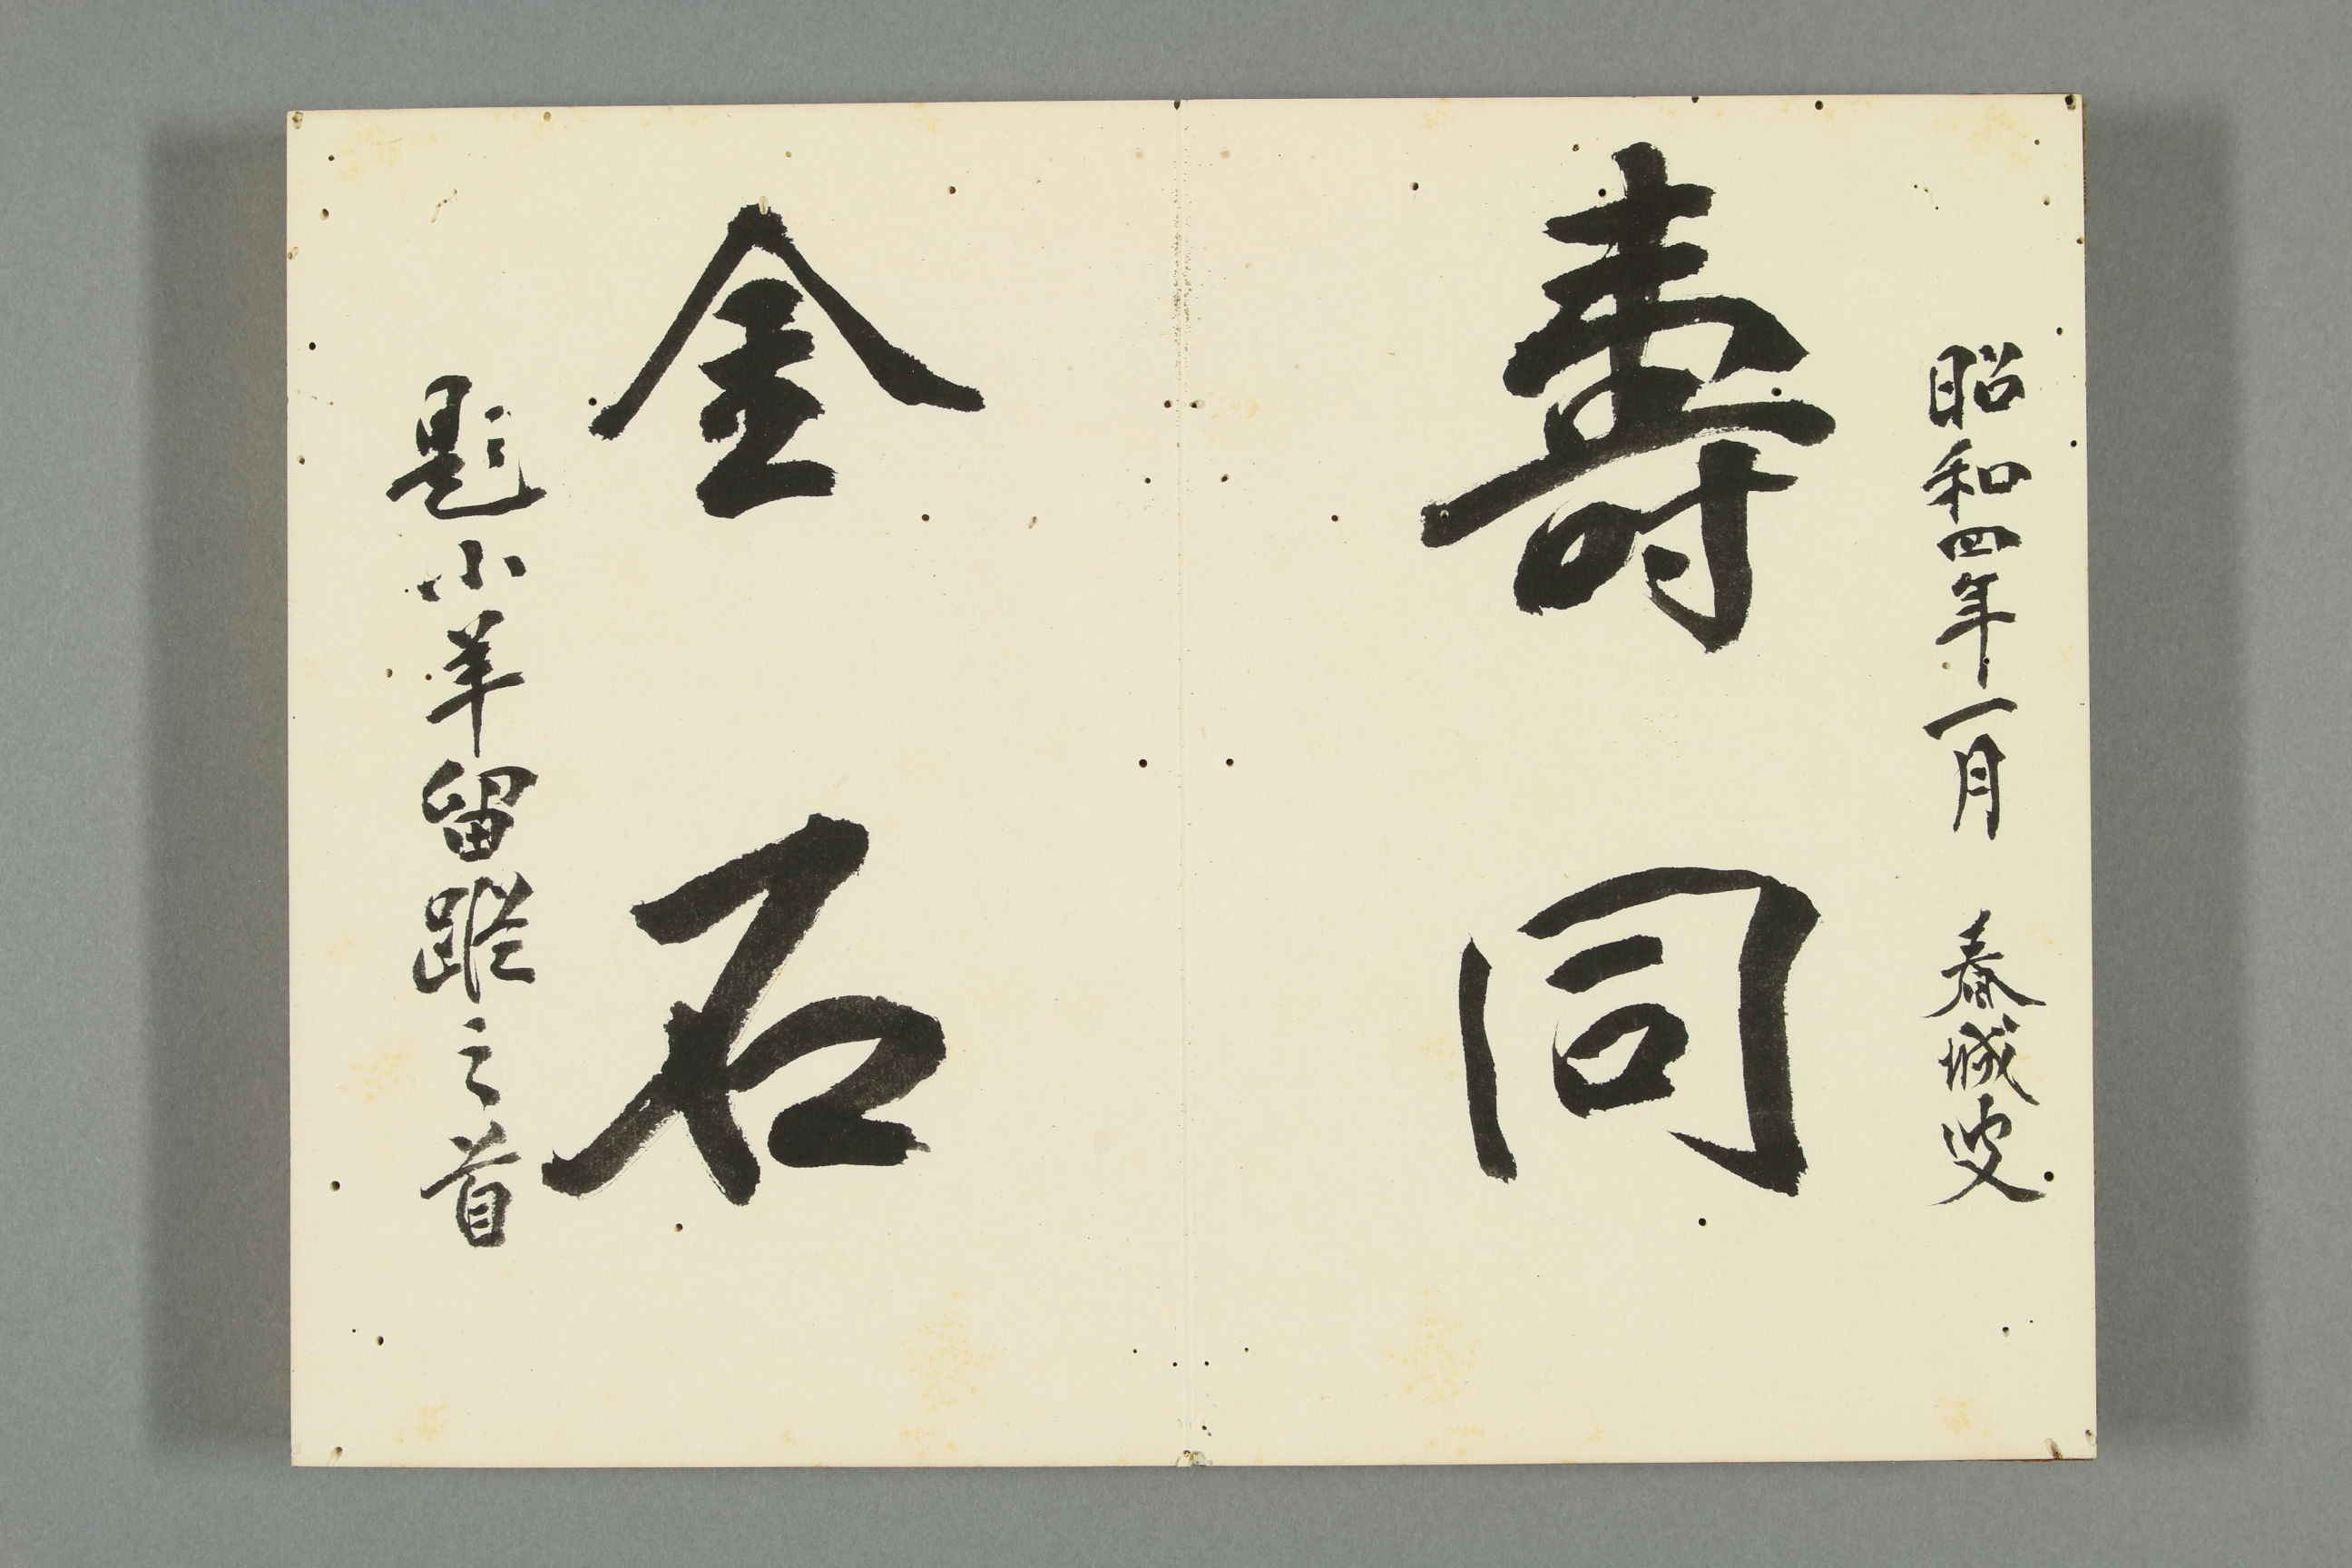 昭和四年一月 春城叟
壽同
金石
題小羊留蹤之首